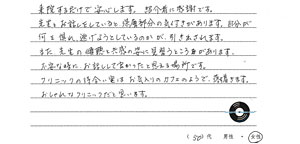 来院するだけで安心します。部分着に感謝です。
先生とお話ししていると保着部分の気付きがあります。自分が
何を恐れ、逃げようとしているのかが、引き出されます。
また先生の傾聴と共感の姿に見習うところがあります。
不安な時に、お話しして良かったと思える場所です。
クリニックの待合い室はお気入りのカフェのようで、落ち着きます。
おしゃれなクリニックだと思います。
( 50 ) 代 男性 ・ 女性